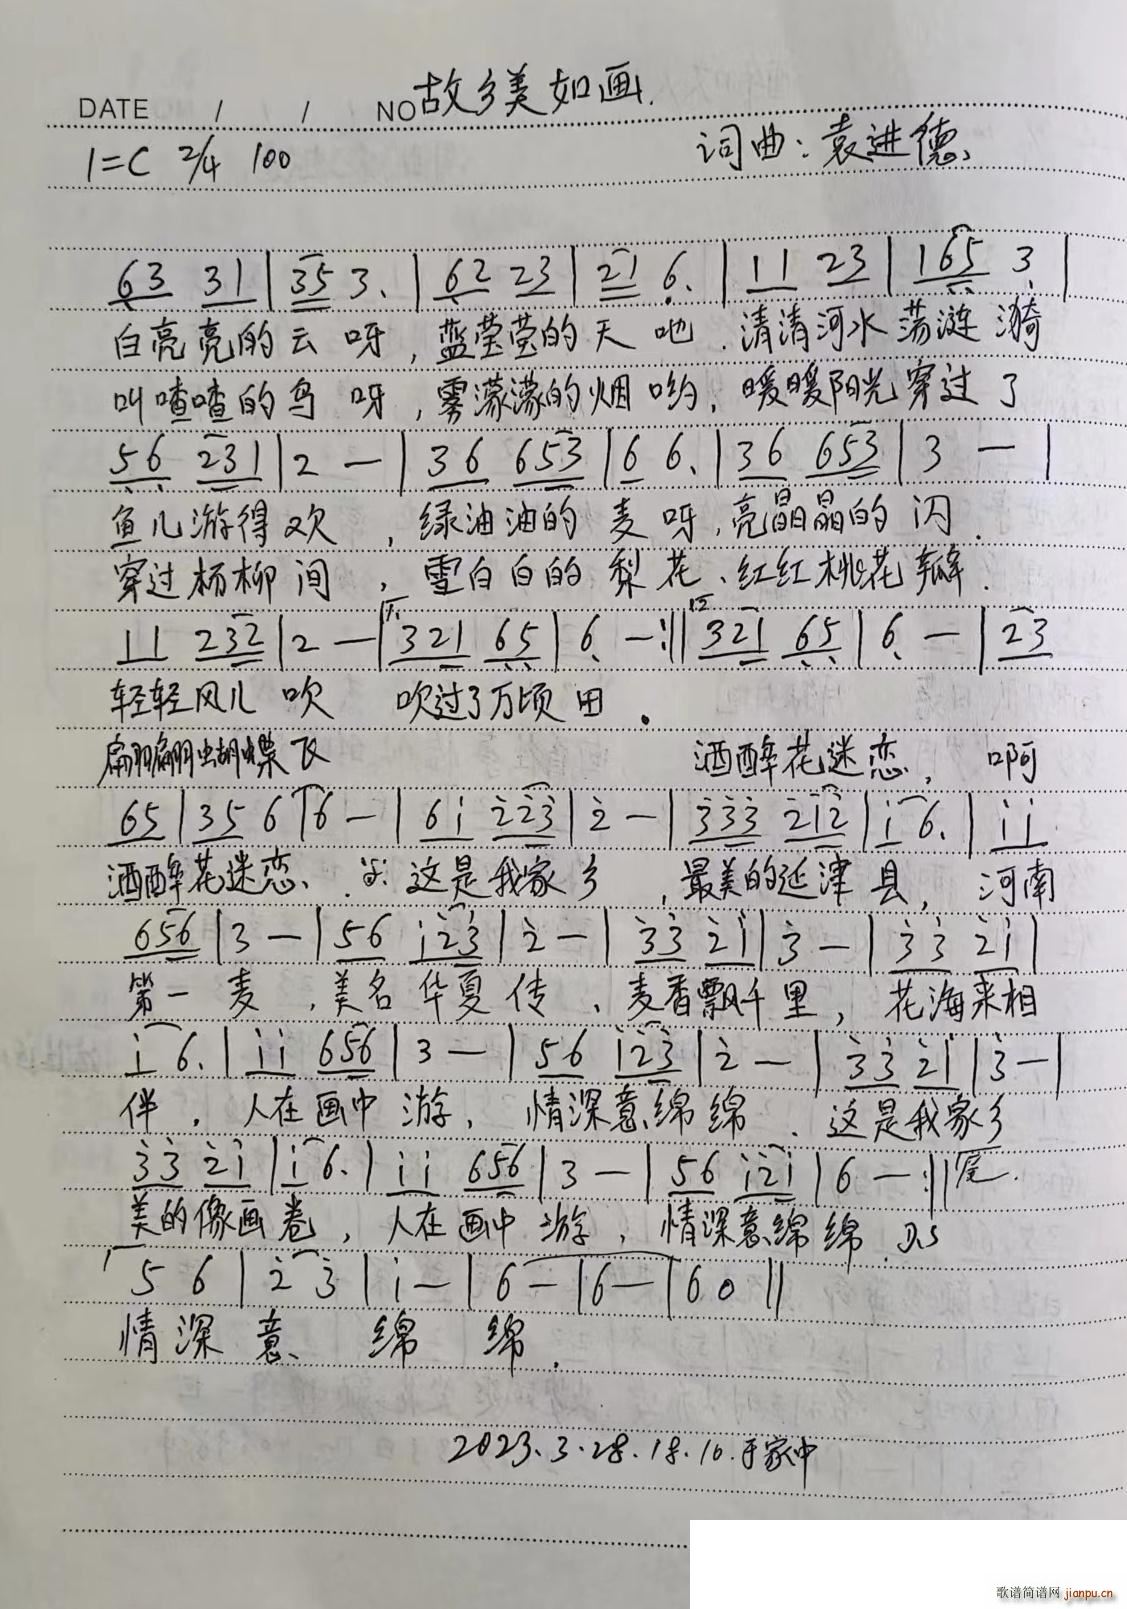 故乡美如画.
DATE / / NO
1=C 2/4 100 词曲:袁进德
63 31 | 35 3. | 62 23 | 21 6. | 11 23 | 165 3 |
白亮亮的云呀,蓝莹莹的天吔.清清河水荡涟漪
叫喳喳的鸟呀,雾濛濛的烟哟,暖暖阳光穿过了
56 231 | 2 — | 36 653 | 6 6. | 36 653 | 3 — |
鱼儿游得欢,绿油油的麦呀,亮晶晶的闪.
穿过杨柳间,雪白白的梨花、红红桃花瓣.
11 232 | 2 — | 321 65 | 6 — :|| 321 65 | 6 — | 23
轻轻风儿吹 吹过了万顷田.
翩翩蝴蝶飞 洒醉花迷恋, 啊
65 | 35 6 | 6 — | 6i 223 | 2 — | 333 212 | i 6. | ii
洒醉花迷恋、 这是我家乡,最美的延津县,河南
656 | 3 — | 56 i23 | 2 — | 33 2i | 3 — | 33 2i |
第一麦,美名华夏传、麦香飘千里,花海来相
i 6. | ii 656 | 3 — | 56 i23 | 2 — | 33 2i | 3 — |
伴,人在画中游,情深意绵绵.这是我家乡
33 2i | i 6. | ii 656 | 3 — | 56 i2i | 6 — :|| 尾.
美的像画卷,人在画中游,情深意绵绵. D.S
5 6 | 2 3 | i — | 6 — | 6 — | 6 0 ||
情深意绵绵.
2023.3.28.18.10.于家中
歌谱简谱网 jianpu.cn